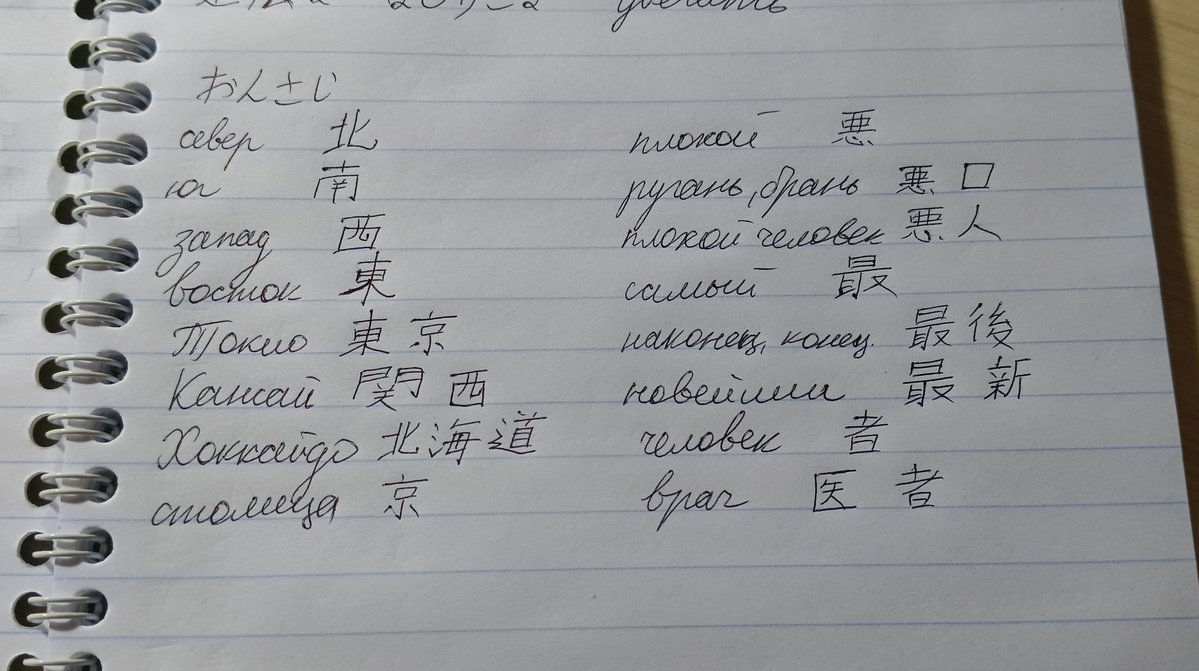 おんさじ
север 北
юг 南
запад 西
восток 東
Токио 東京
Кансай 関西
Хоккайдо 北海道
столица 京
плохой 悪
ругань, брань 悪口
плохой человек 悪人
самый 最
наконец, конец 最後
новейший 最新
человек 者
врач 医者